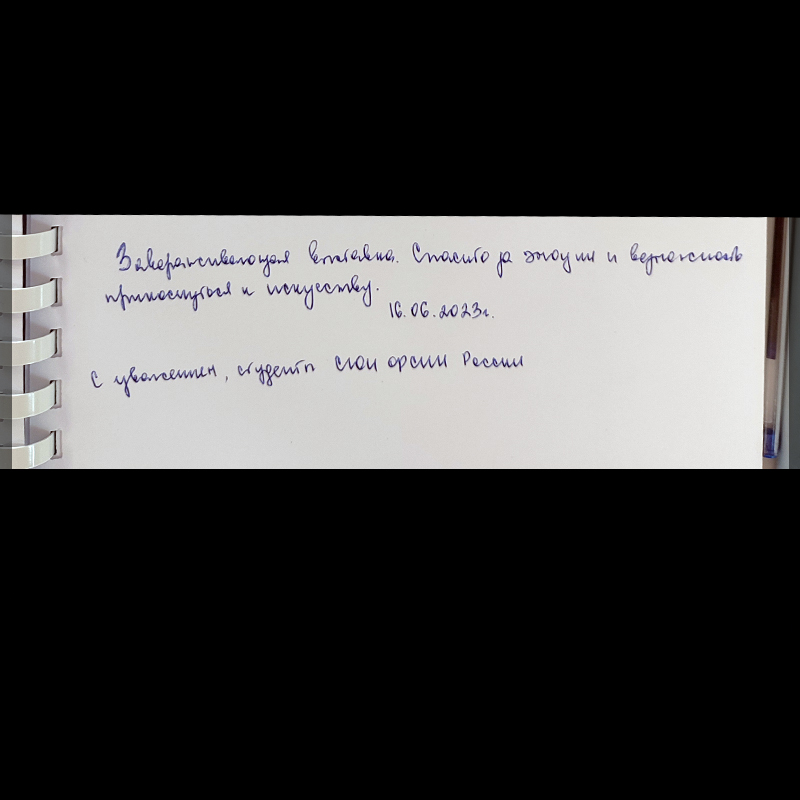 Завораживающая выставка. Спасибо за эмоции и возможность
прикоснуться к искусству.
16.06.2023г.
С уважением, студенты России